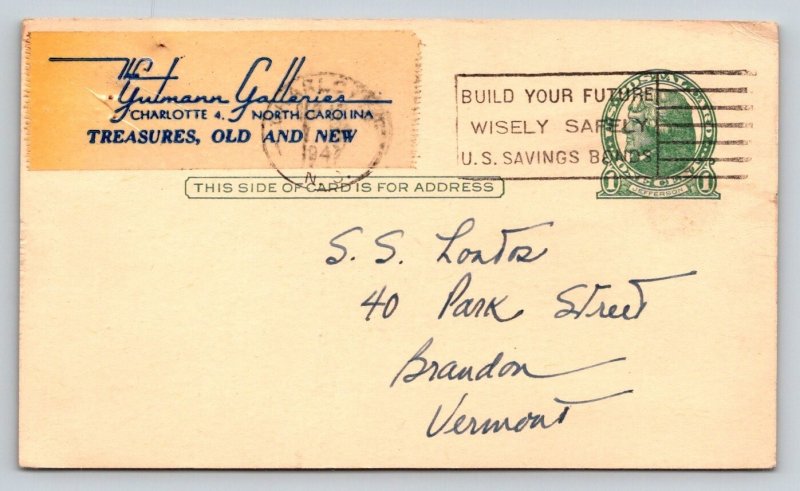 The
Gutmann Galleries
CHARLOTTE 4, NORTH CAROLINA
TREASURES, OLD AND NEW
BUILD YOUR FUTURE
WISELY SAFELY
U.S. SAVINGS BONDS
1
JEFFERSON
1
THIS SIDE OF CARD IS FOR ADDRESS
S. S. Lontos
40 Park Street
Brandon
Vermont